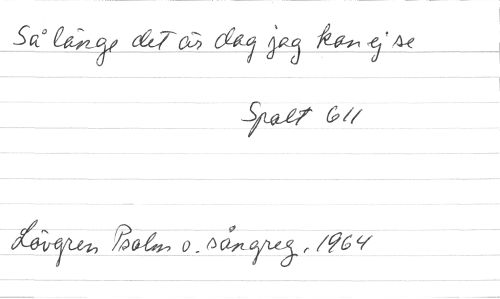 Så länge det är dag jag kan ej se
Spalt 611
Lövgren Psalm o. sångreg. 1964